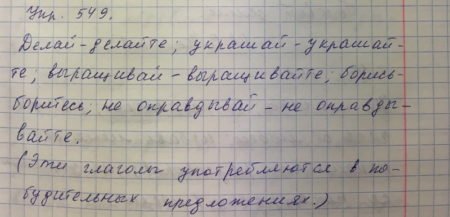 Упр. 549.
Делай-делайте; украшай-украшай-
те; выращивай-выращивайте; борись-
боритесь; не оправдывай-не оправды-
вайте.
(Эти глаголы употребляются в по-
будительных предложениях.)